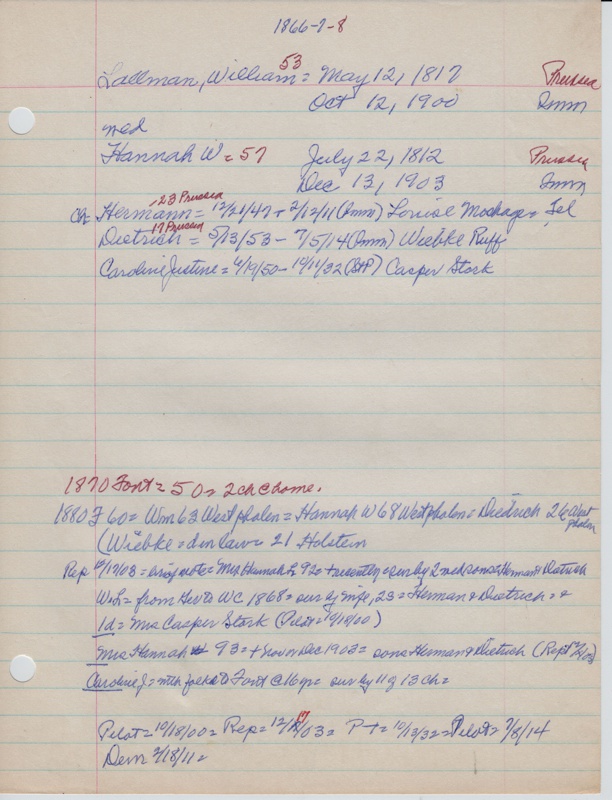 1866-7-8
Lallman, William = May 12, 1817 Prussia
53
Oct 12, 1900 Imm
med
Hannah W = 57 July 22, 1812 Prussia
Dec 13, 1903 Imm
-23 Prussia
Ch Hermann = 12/21/47 + 2/12/11 (Imm) Louise = Tel
17 Prussia
Dietrich = 5/13/53 - 7/5/14 (Imm) Wiebke Ruff
Caroline Justine = 4/19/50 - 10/11/32 (StP) Casper Stork
1870 Font = 50 = 2 ch @ home.
1880 F 60 = Wm 63 West phalen = Hannah W 68 Westphalen = Diedrich 26 West phalen
(Wiebke = d in law = 21 Holstein
Rep 12/17/03 = = Mrs Hannah L 92 = + recently = sur by 2 sons Herman & Dietrich
W.L. = from to WC 1868 = sur by wife, 2s = Herman & Dietrich = +
1d = Mrs Casper Stork (Pilot = 10/18/00)
Mrs Hannah W 93 = + Nov or Dec 1903 = sons Herman & Dietrich (Rept
Caroline J = with folks to Font @ 16 yr = sur by 11 of 13 ch =
Pilot = 10/18/00 = Rep = 12/17/03 = P + = 10/13/32 = Pilot = 7/8/14
Dem 2/18/11 =